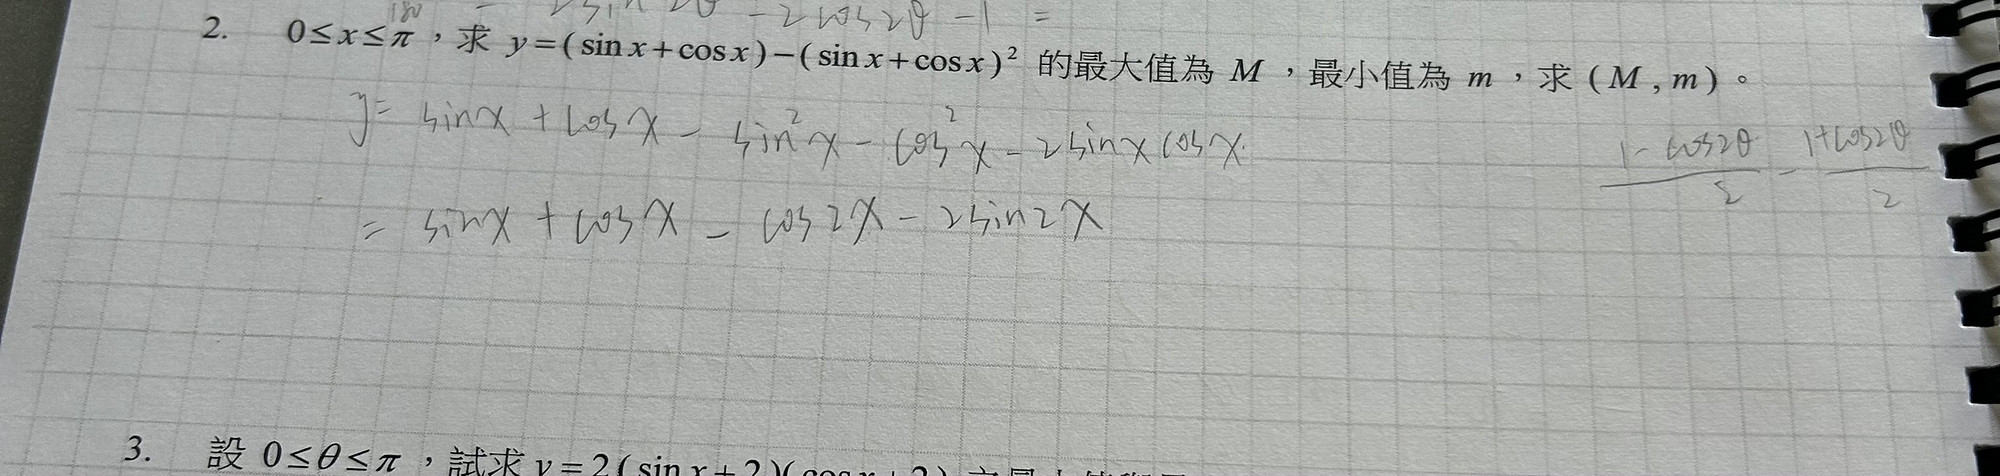 180 - 2sin2θ - 2cos2θ - 1 =
2. 0≤x≤π，求 y=(sinx+cosx)-(sinx+cosx)² 的最大值為 M，最小值為 m，求 (M,m)。
y= sinx + cosx - sin²x - cos²x - 2sinx cosx.
1-cos2θ/2 - 1+cos2θ/2
= sinx + cosx - cos2x - 2sin2x
3. 設 0≤θ≤π，試求 y=2(sinx+2)(cosx+2)